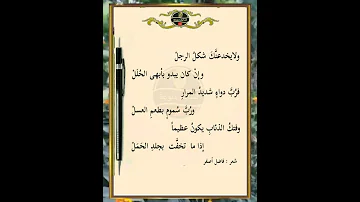 ولايخدعنَّكَ شكلُ الرجلْ
وإنْ كان يبدو بأبهى الحُلَلْ
فرُبَّ دواءٍ شديدُ المرارِ
ورُبَّ سُمومٍ بطعمِ العسلْ
وفتكُ الذئابِ يكونُ عظيماً
إذا ما تخفَّت بجلدِ الحَمَلْ
شعر : فاضل أصفر